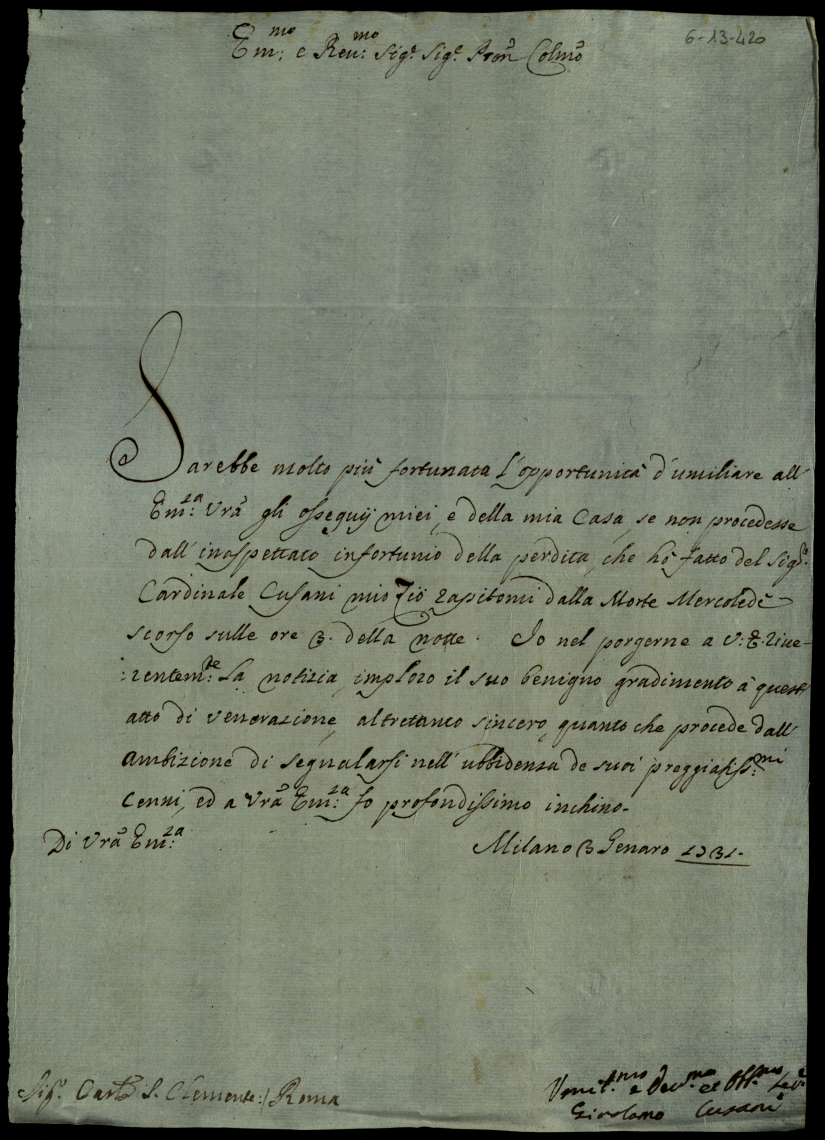 6-13-420
Em:mo e Reu:mo Sig.r Sig.r Pron Colmo
Sarebbe molto più fortunata l'opportunità d'umiliare all'
Em:za Vra gli ossequij miei, e della mia Casa, se non procedesse
dall'inaspettato infortunio della perdita, che hò fatto del Sig.r
Cardinale Cusani mio Zio rapitomi dalla Morte Mercoledè
scorso sulle ore 3. della notte. Io nel porgerne a V: E: riue-
:rentem:te la notizia, imploro il suo benigno gradimento à quest'
atto di venerazione, altrettanto sincero, quanto che procede dall'
ambizione di segnalarsi nell'ubbidenza de suoi preggiatiss:mi
Cenni, ed a Vra Em:za fo profondissimo inchino.
Di Vra Em:za
Milano 3 Genaro 1731.
Sig.r Card. S. Clemente:/ Roma
Vmil:mo e Deu:mo et Obl:mo Ser.e
Girolamo Cusani